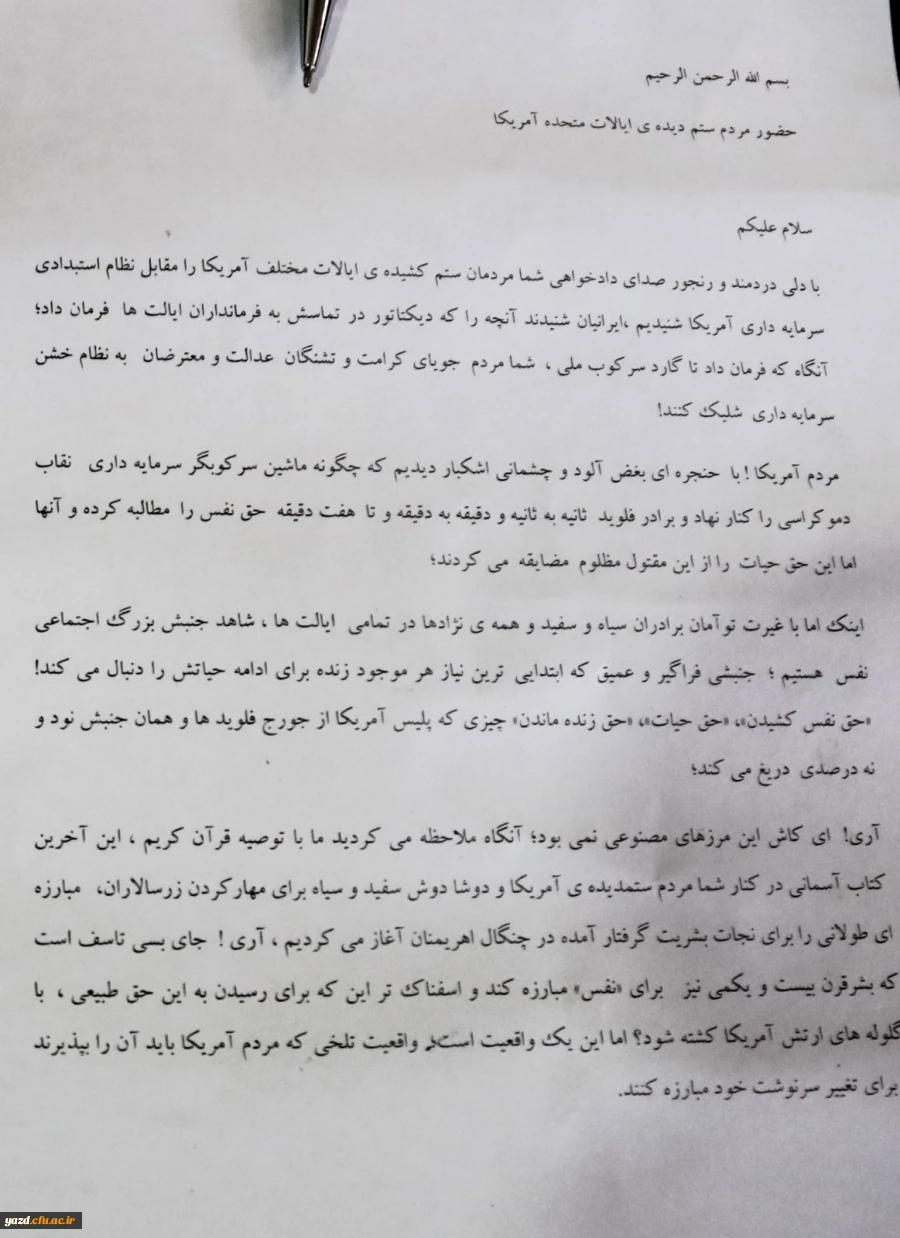 بسم الله الرحمن الرحیم
حضور مردم ستم دیده ی ایالات متحده آمریکا
سلام علیکم
با دلی دردمند و رنجور صدای دادخواهی شما مردمان ستم کشیده ی ایالات مختلف آمریکا را مقابل نظام استبدادی
سرمایه داری آمریکا شنیدیم ،ایرانیان شنیدند آنچه را که دیکتاتور در تماسش به فرمانداران ایالت ها فرمان داد؛
آنگاه که فرمان داد تا گارد سرکوب ملی ، شما مردم جویای کرامت و تشنگان عدالت و معترضان به نظام خشن
سرمایه داری شلیک کنند!
مردم آمریکا ! با حنجره ای بغض آلود و چشمانی اشکبار دیدیم که چگونه ماشین سرکوبگر سرمایه داری نقاب
دموکراسی را کنار نهاد و برادر فلوید ثانیه به ثانیه و دقیقه به دقیقه و تا هفت دقیقه حق نفس را مطالبه کرده و آنها
اما این حق حیات را از این مقتول مظلوم مضایقه می کردند؛
اینک اما با غیرت توآمان برادران سیاه و سفید و همه ی نژادها در تمامی ایالت ها ، شاهد جنبش بزرگ اجتماعی
نفس هستیم ؛ جنبشی فراگیر و عمیق که ابتدایی ترین نیاز هر موجود زنده برای ادامه حیاتش را دنبال می کند!
«حق نفس کشیدن»، «حق حیات»، «حق زنده ماندن» چیزی که پلیس آمریکا از جورج فلوید ها و همان جنبش نود و
نه درصدی دریغ می کند؛
آری! ای کاش این مرزهای مصنوعی نمی بود؛ آنگاه ملاحظه می کردید ما با توصیه قرآن کریم ، این آخرین
کتاب آسمانی در کنار شما مردم ستمدیده ی آمریکا و دوشا دوش سفید و سیاه برای مهارکردن زرسالاران، مبارزه
ای طولانی را برای نجات بشریت گرفتار آمده در چنگال اهریمنان آغاز می کردیم ، آری ! جای بسی تاسف است
که بشرقرن بیست و یکمی نیز برای «نفس» مبارزه کند و اسفناک تر این که برای رسیدن به این حق طبیعی ، با
گلوله های ارتش آمریکا کشته شود؟ اما این یک واقعیت است؛ واقعیت تلخی که مردم آمریکا باید آن را بپذیرند
برای تغییر سرنوشت خود مبارزه کنند.
yazd.cfu.ac.ir